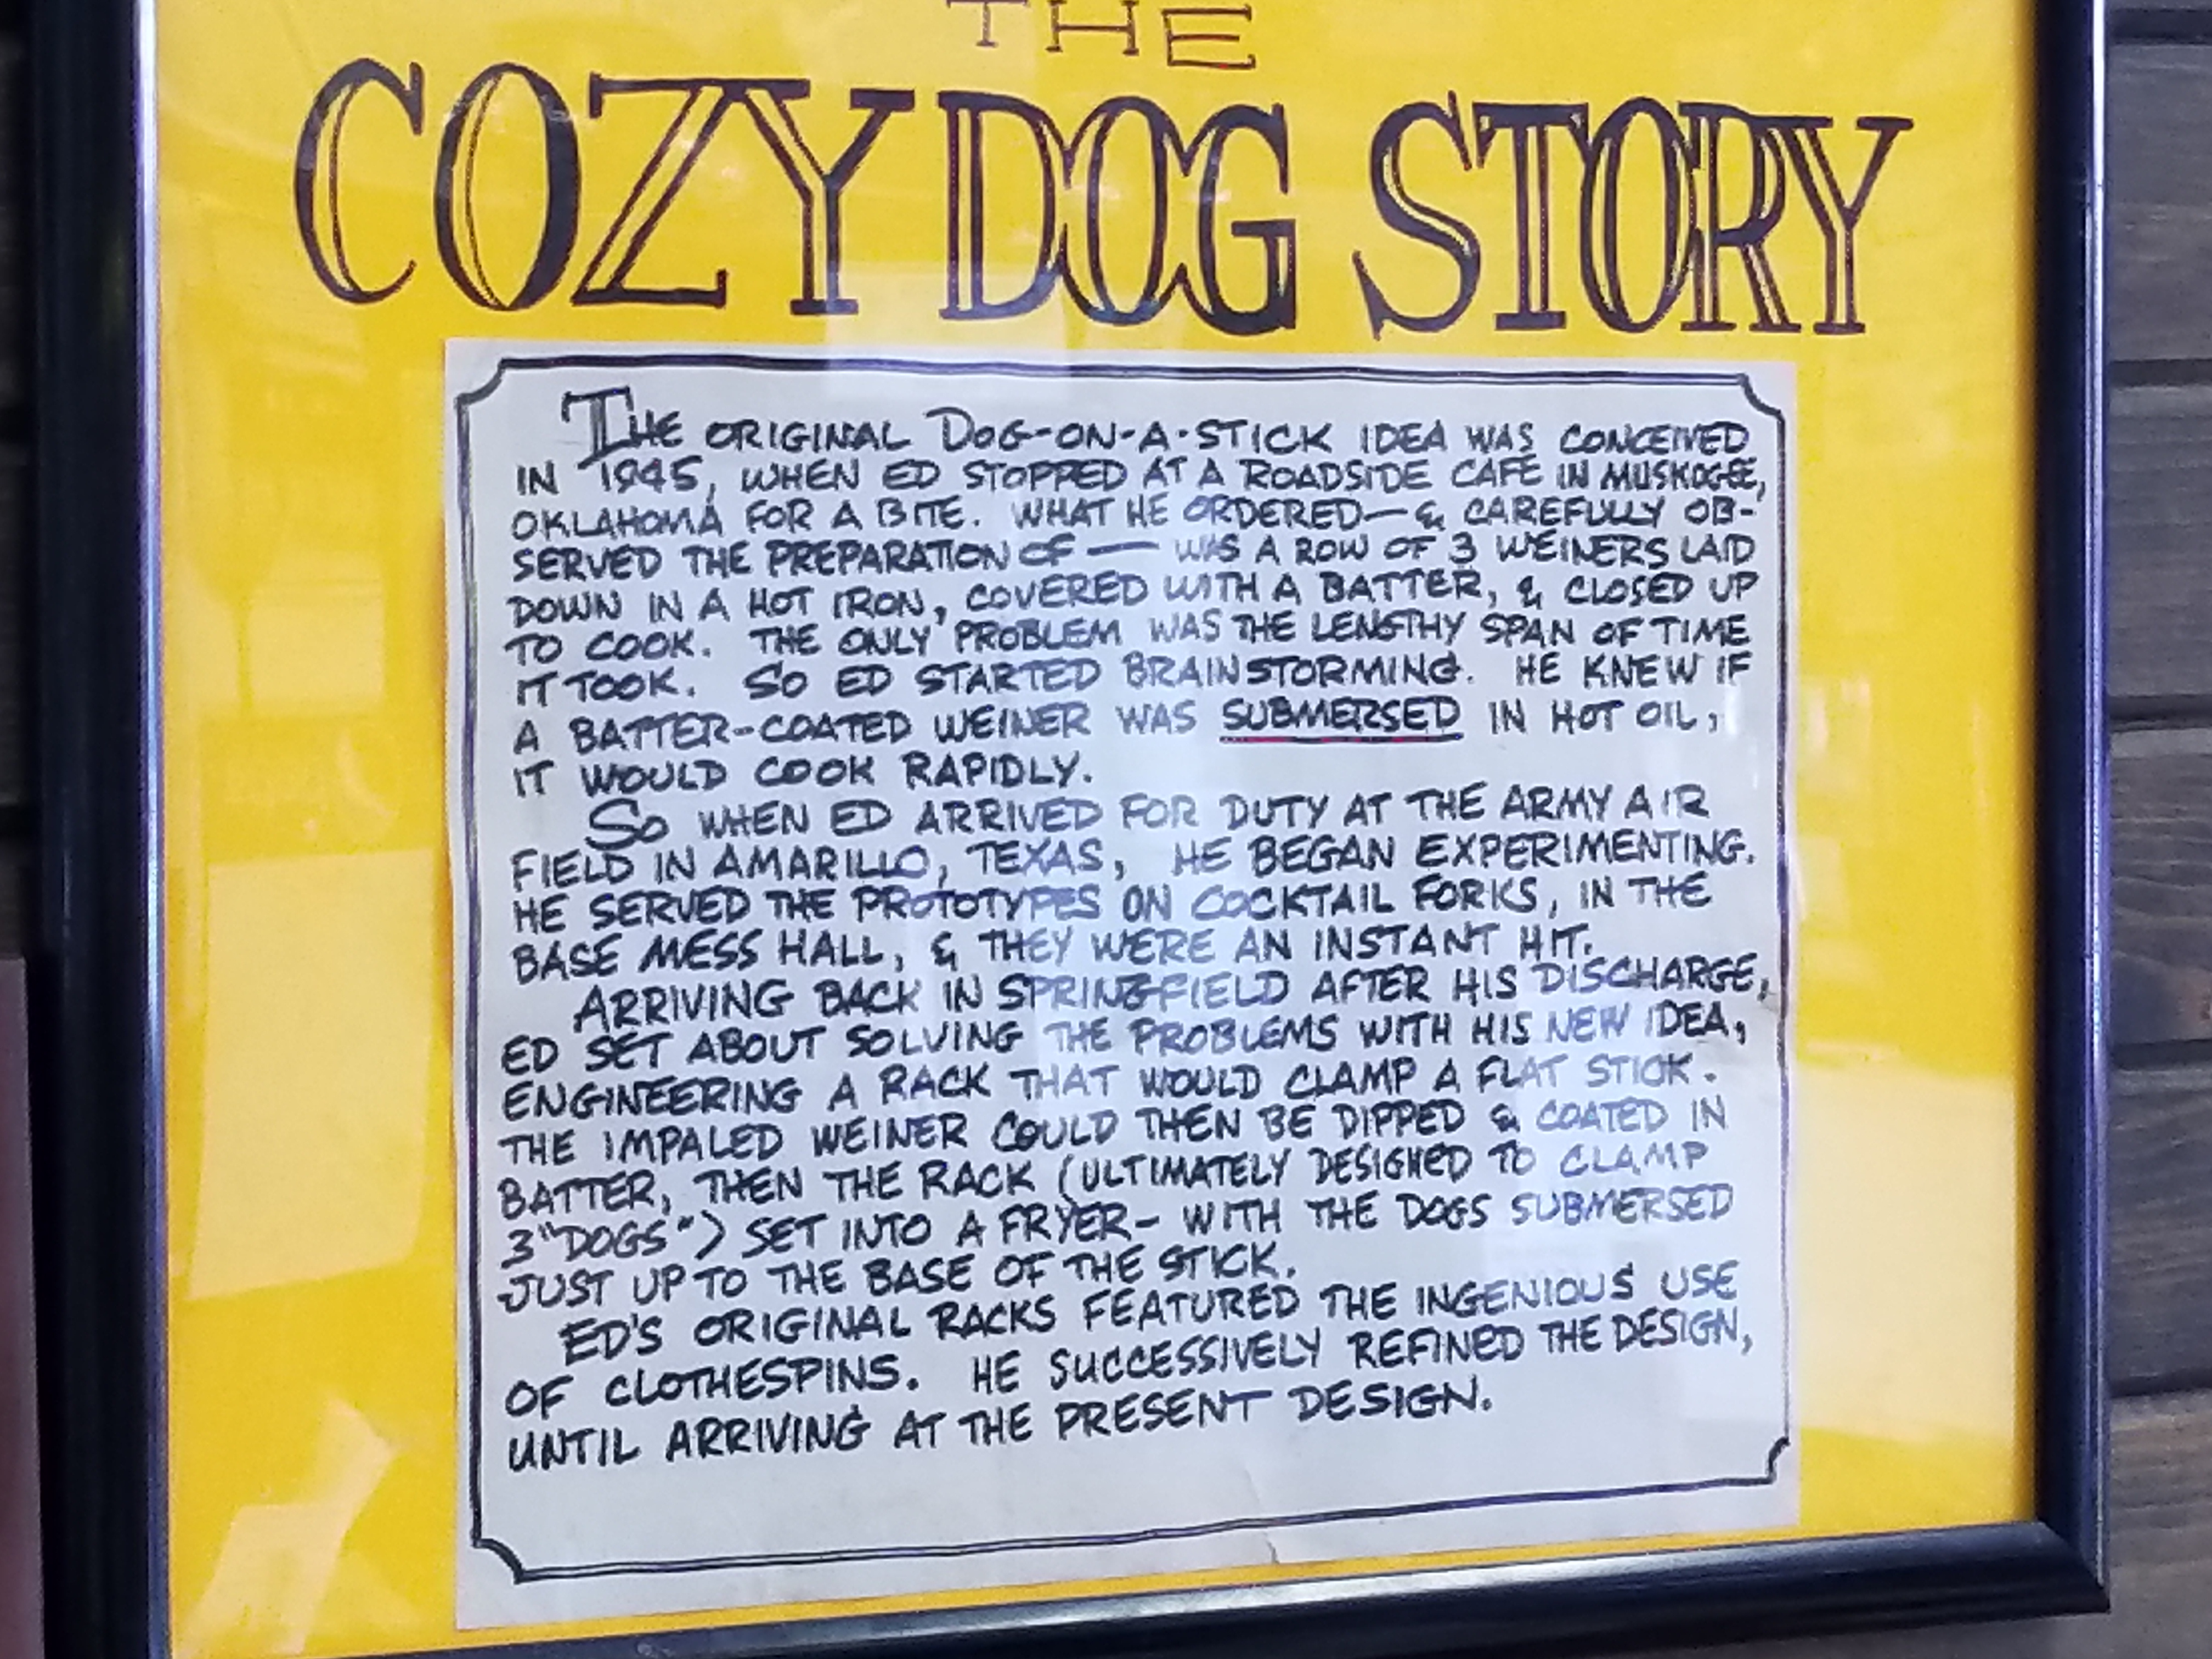 THE
COZY DOG STORY
THE ORIGINAL DOG-ON-A-STICK IDEA WAS CONCEIVED
IN 1945, WHEN ED STOPPED AT A ROADSIDE CAFE IN MUSKOGEE,
OKLAHOMA FOR A BITE. WHAT HE ORDERED— & CAREFULLY OB-
SERVED THE PREPARATION OF — WAS A ROW OF 3 WEINERS LAID
DOWN IN A HOT IRON, COVERED WITH A BATTER, & CLOSED UP
TO COOK. THE ONLY PROBLEM WAS THE LENGTHY SPAN OF TIME
IT TOOK. SO ED STARTED BRAINSTORMING. HE KNEW IF
A BATTER-COATED WEINER WAS SUBMERSED IN HOT OIL,
IT WOULD COOK RAPIDLY.
SO WHEN ED ARRIVED FOR DUTY AT THE ARMY AIR
FIELD IN AMARILLO, TEXAS, HE BEGAN EXPERIMENTING.
HE SERVED THE PROTOTYPES ON COCKTAIL FORKS, IN THE
BASE MESS HALL, & THEY WERE AN INSTANT HIT.
ARRIVING BACK IN SPRINGFIELD AFTER HIS DISCHARGE,
ED SET ABOUT SOLVING THE PROBLEMS WITH HIS NEW IDEA,
ENGINEERING A RACK THAT WOULD CLAMP A FLAT STICK.
THE IMPALED WEINER COULD THEN BE DIPPED & COATED IN
BATTER, THEN THE RACK (ULTIMATELY DESIGNED TO CLAMP
3 "DOGS") SET INTO A FRYER- WITH THE DOGS SUBMERSED
JUST UP TO THE BASE OF THE STICK.
ED'S ORIGINAL RACKS FEATURED THE INGENIOUS USE
OF CLOTHESPINS. HE SUCCESSIVELY REFINED THE DESIGN,
UNTIL ARRIVING AT THE PRESENT DESIGN.